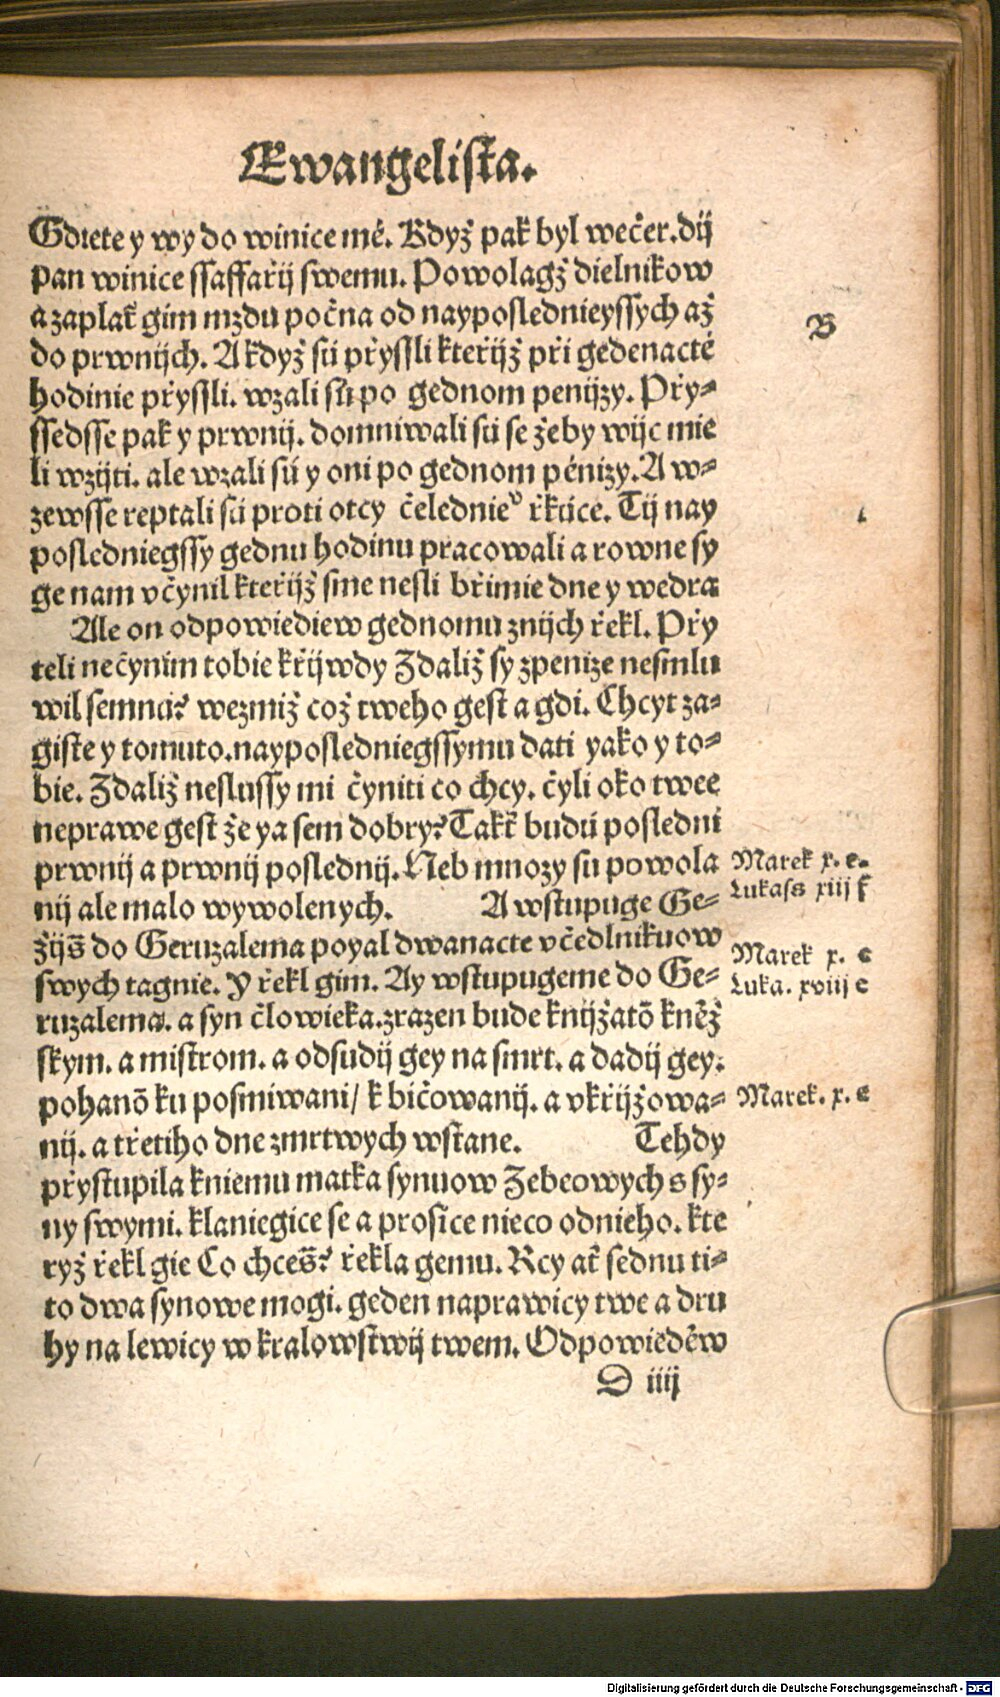 Ewangelista.
Gdiete y wy do winice mé. Když pak byl wečer. dij
pan winice ssaffařij swemu. Powolagž dielnikow
a zaplať gim mzdu počna od nayposlednieyssych až
do prwnijch. A když sú přyssli kteřijž při gedenacté
hodinie přyssli. wzali sú po gednom penijzy. Přy-
ssedsse pak y prwnij. domniwali sú se žeby wijc mie
li wzijti. ale wzali sú y oni po gednom pěnizy. A w-
zewsse reptali sú proti otcy čelednieͮ řkúce. Tij nay
posledniegssy gednu hodinu pracowali a rowne sy
ge nam včynil kteřijž sme nesli břimie dne y wedra
Ale on odpowiediew gednomu znijch řekl. Přy
teli nečynim tobie křijwdy Zdaliž sy zpenize nesmlu
wil semnú? wezmiž což tweho gest a gdi. Chcyt za-
giste y tomuto. nayposledniegssymu dati yako y to-
bie. Zdaliž neslussy mi čyniti co chcy. čyli oko twee
neprawe gest že ya sem dobry? Takť budú posledni
prwnij a prwnij poslednij. Neb mnozy su powola
nij ale malo wywolenych. A wstupuge Ge-
žijš do Geruzalema poyal dwanacte včedlnikuow
swych tagnie. Y řekl gim. Ay wstupugeme do Ge-
ruzalema. a syn člowieka. zrazen bude knijžatō kněž
skym. a mistrom. a odsudij gey na smrt. a dadij gey.
pohanō ku posmiwani/ k bičowanij. a vkřijžowa-
nij. a třetiho dne zmrtwych wstane. Tehdy
přystupila kniemu matka synuow Zebeowych s sy-
ny swymi. klaniegice se a prosice nieco odnieho. kte
ryž řekl gie Co chceš? řekla gemu. Rcy ať sednu ti-
to dwa synowe mogi. geden naprawicy twe a dru
hy na lewicy w kralowstwij twem. Odpowieděw
D iiij
B
Marek x. e.
Lukass xiij f
Marek x. e
Luka. xviij e
Marek. x. e
Digitalisierung gefördert durch die Deutsche Forschungsgemeinschaft - DFG